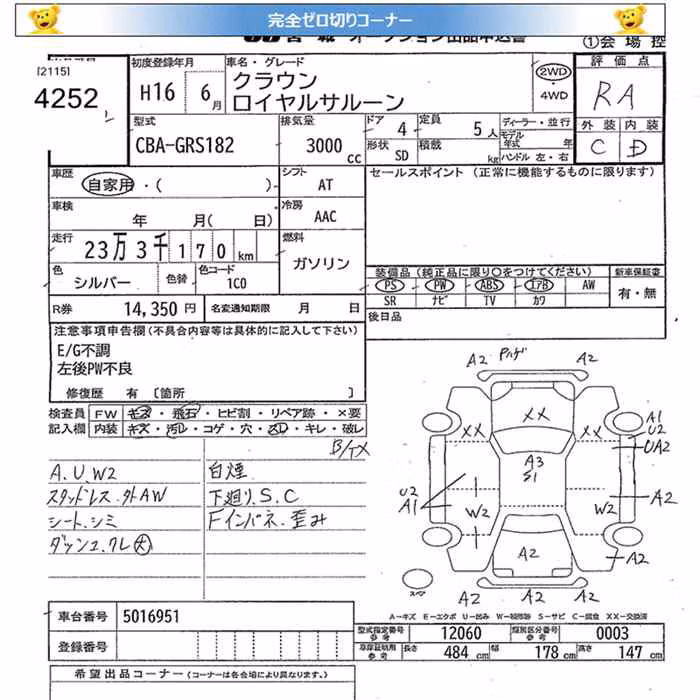 完全ゼロ切りコーナー
JU 宮城 オークション出品申込書
①会場控
[2115]
4252
初度登録年月
H16 6月
車名・グレード
クラウン
ロイヤルサルーン
2WD
・4WD
評価点
RA
外装 内装
C D
型式
CBA-GRS182
排気量
3000cc
ドア 4
定員 5人
形状 SD
積載 kg
ディーラー・並行
モデル年式 年
ハンドル 左・右
車歴
自家用・( )
シフト
AT
セールスポイント (正常に機能するものに限ります)
車検
年 月( 日)
冷房
AAC
走行
23万3千170km
燃料
ガソリン
色
シルバー
色替
色コード
1C0
装備品(純正品に限り○をつけてください)
新車保証書
PS PW ABS エアB AW
有・無
SR ナビ TV カワ
R券 14,350円
名変通知期限 月 日
後日品
注意事項申告欄(不具合内容等は具体的に記入して下さい)
E/G不調
左後PW不良
修復歴 有 〔箇所 〕
検査員 FW キズ・飛石・ヒビ割・リペア跡・×要
記入欄 内装 キズ・汚レ・コゲ・穴・スレ・キレ・破レ
B/TX
A.U.W2
スタッドレス.外AW
シート.シミ
ダッシュ.クレ大
白煙
下廻りS.C
Fインパネ.歪み
A2 A2
XX
XX XX
A1
U2
UA2
A3
S1
U2
A1
W2 W2
A2
A2
A2
A2 A2
スペア
A=キズ E=エクボ U=凹み W=補修跡 S=サビ C=腐食 XX=交換済
車台番号 5016951
登録番号
型式指定番号 参考 12060
類別区分番号 参考 0003
車庫証明用 参考 長さ 484cm 幅 178cm 高さ 147cm
希望出品コーナー(コーナーは各会場により異なります。)